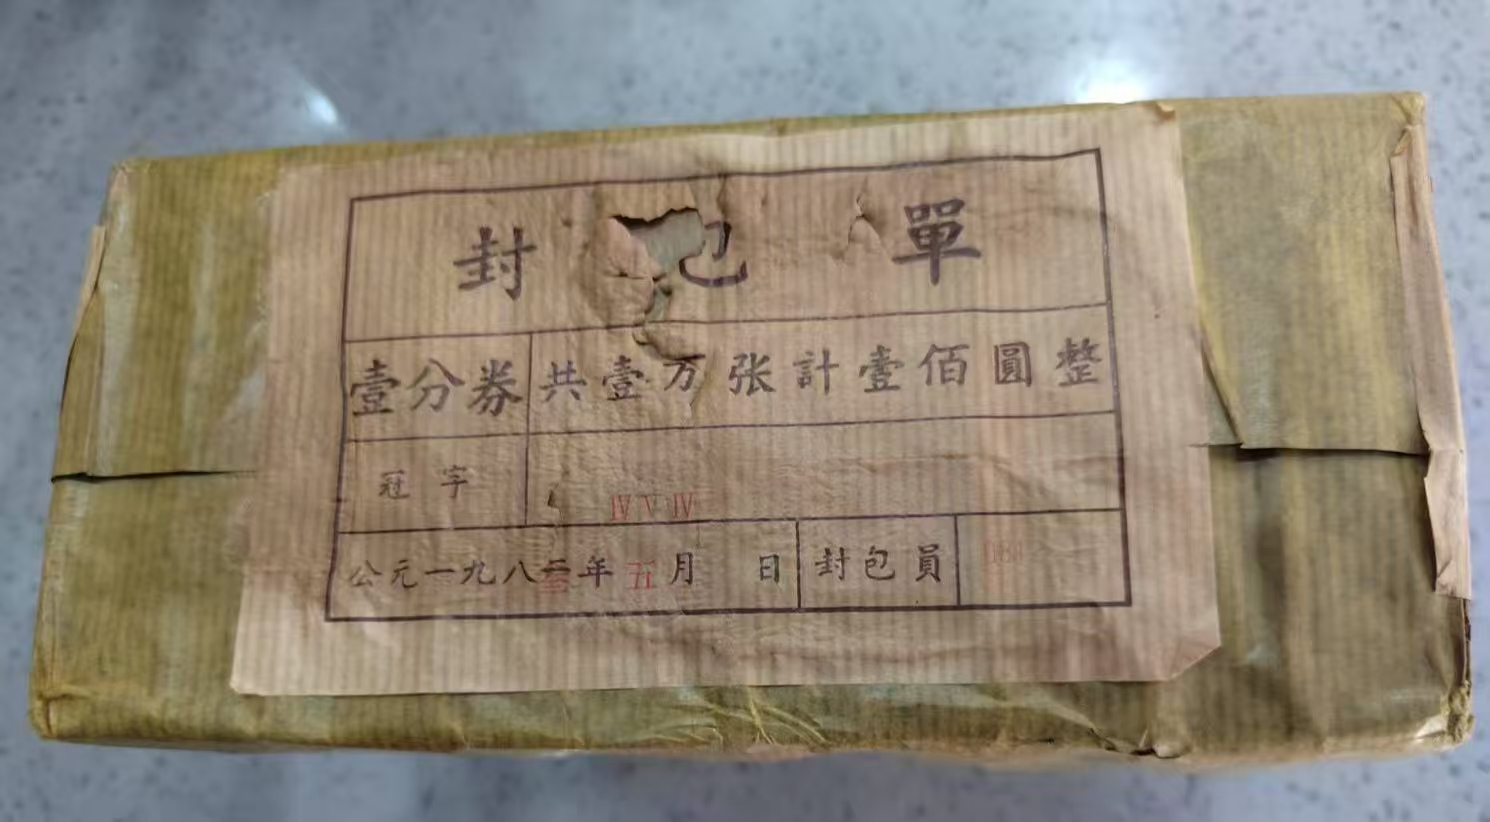 封包單
壹分券 共壹万张計壹佰圓整
冠字 IV V IV
公元一九八 年五月 日 封包員